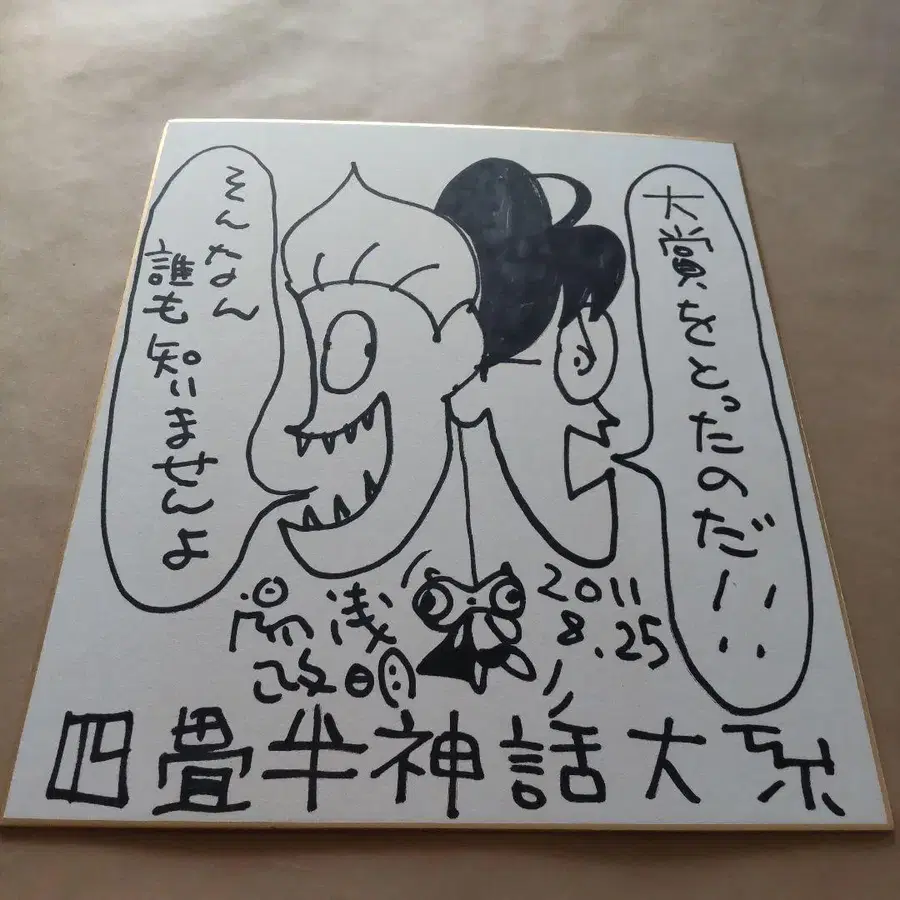 大賞をとったのだ!!
そんなん
誰も知りませんよ
湯浅
政明
2011
8.25
四畳半神話大系